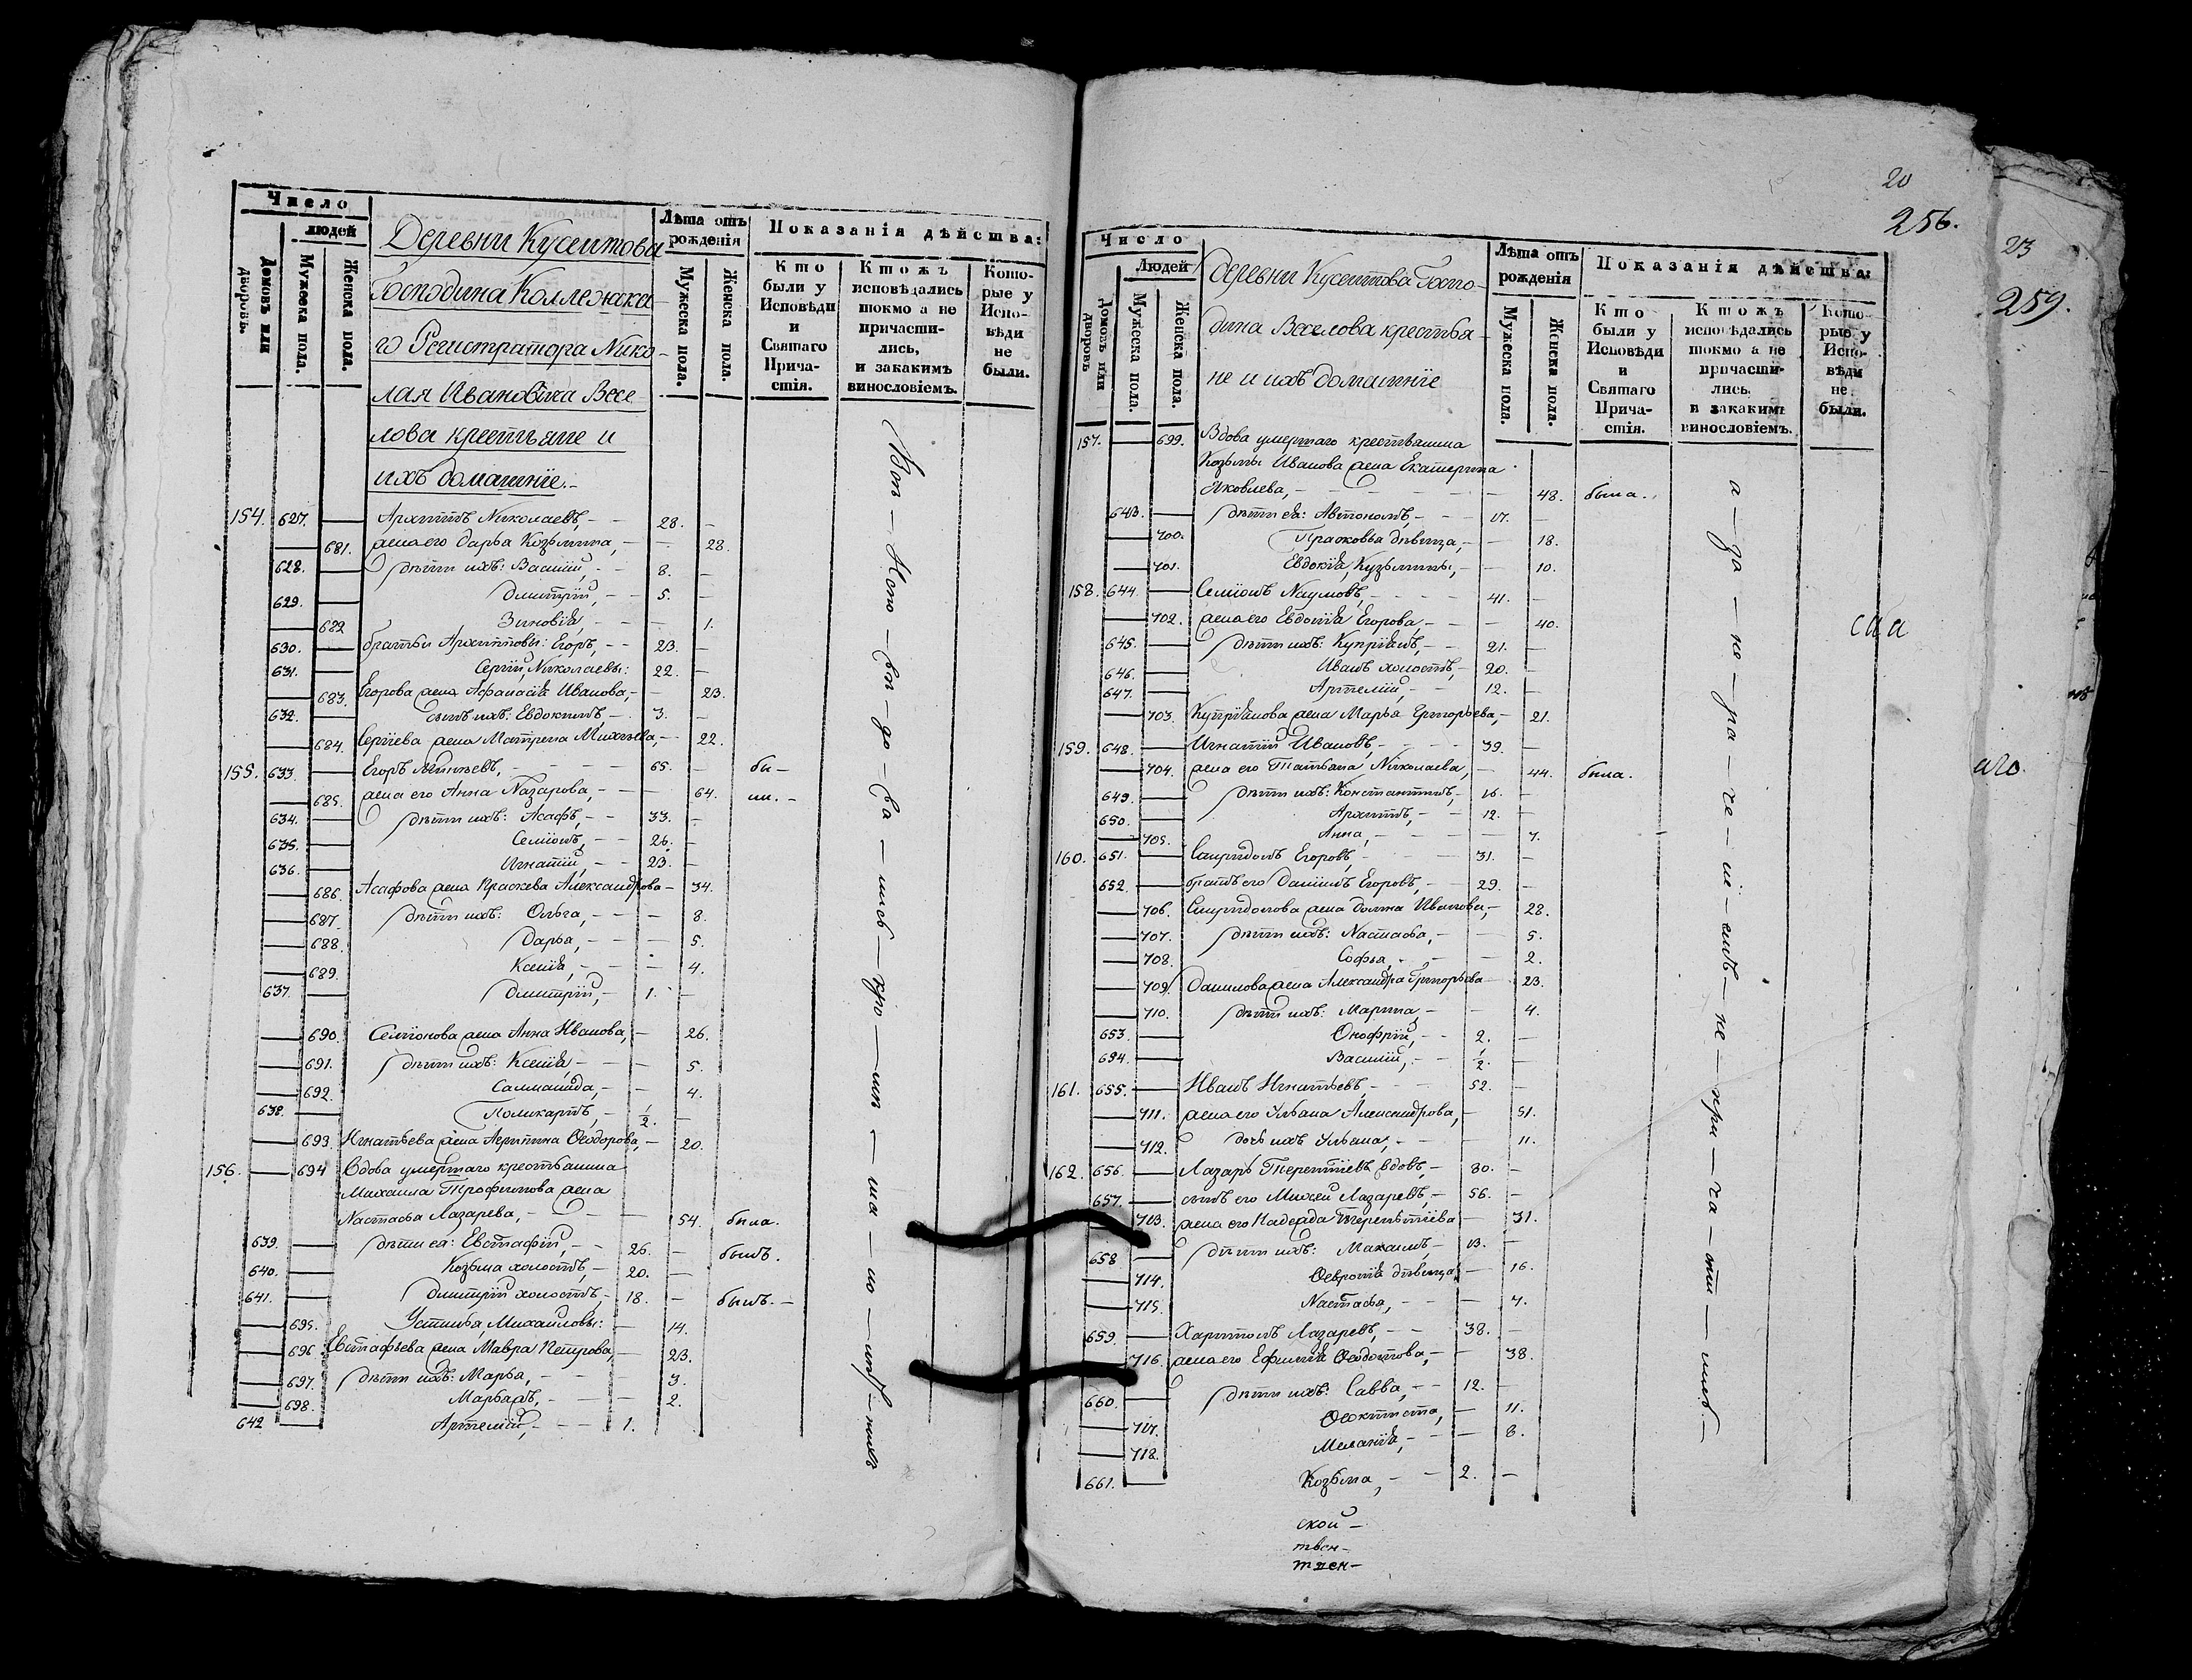 Число
людей
Домовъ или дворовъ.
Мужеска пола.
Женска пола.
Деревни Кусеитова
Господина Коллежска-
го Регистратора Нико-
лая Ивановича Весе
лова крестьяне и
ихъ домашнїе.-
Лѣта отъ рожденія
Мужеска пола.
Женска пола.
Показанія дѣйства:
Кто были у Исповѣди и Святаго Прича- стія.
Ктожъ исповѣдались токмо а не причасти- лись, и закакимъ винословіемъ.
Кото- рые у Испо- вѣди не были.
154. 627. Архиппъ Николаевъ, 28.
681. жена его Дарья Козьмина, 28.
628. дѣти ихъ: Василій, 8.
629. Дмитрїй, 5.
682 Зиновїя, 1.
630. братьи Архипповы: Егоръ, 23.
631. Сергїй, Николаевы: 22.
683. Егорова жена Афанасїя Иванова, 23.
632. сынъ ихъ: Евдокимъ, 3.
684. Сергїева жена Матрена Михѣева, 22.
155. 633. Егоръ 65. бы-
685. жена его Анна Назарова, 64. ли.-
634. дѣти ихъ: Асафъ, 33.
635. Семїонъ, 26.
636. Игнатїй, 23.
686. Асафова жена Праскева Александрова 34.
687. дѣти ихъ: Ольга, 8.
688. Дарья, 5.
689. Ксенїя, 4.
637. Дмитрїй, 1.
690. Семїонова жена Анна Иванова, 26.
691. дѣти ихъ: Ксенїя, 5.
692. 4.
638. Поликарпъ, 1/2.
693. Игнатьева жена Агрипина Ѳеодорова, 20.
156. 694 Вдова умершаго крестьянина
Михаила Трофимова жена
Настасья Лазарева, 54. была.
639. дѣти ея: Евстафїй, 26. былъ.
640. Козьма холостъ, 20.
641. Дмитрїй холостъ 18. былъ.-
695. Устинья, Михаиловы: 14.
696 Евстафьева жена Мавра Петрова, 23.
697. дѣти ихъ: Марья, 3.
698. 2.
642 Артемїй, 1.
20
256.
Число
Людей
Домовъ или дворовъ
Мужеска пола.
Женска пола.
Деревни Кусеитова Госпо-
дина Веселова крестья-
не и ихъ домашнїе
Лѣта отъ рожденія
Мужеска пола.
Женска пола.
Показанія дѣйства:
Кто были у Исповѣди и Святаго Прича- стія.
Ктожъ исповѣдались токмо а не причасти- лись. и закакимъ винословіемъ.
Кото- рые у Испо- вѣди не были.
157. 699. Вдова умершаго крестьянина
Козьмы Иванова жена Екатерина
Яковлева, 48. была.
643. дѣти ея: Автономъ, 17.
700. Прасковья дѣвица, 18.
701. Евдокїя, Кузьмины, 10.
158. 644. Семїонъ Наумовъ, 41.
702. жена его Евдокїя Егорова, 40.
645. дѣти ихъ: Купрїянъ, 21.
646. Иванъ холостъ, 20.
647. Артемїй, 12.
703. Купрїянова жена Марья Григорьева, 21.
159. 648. Игнатїй Ивановъ, 39.
704. жена его Татьяна Николаева, 44. была.
649. дѣти ихъ: Константинъ, 16.
650. Архиппъ, 12.
705. Анна, 7.
160. 651. Спиридонъ Егоровъ, 31.
652. братъ его Данїилъ Егоровъ, 29.
706. Спиридонова жена Домна Иванова, 28.
707. дѣти ихъ: Настасья, 5.
708. Софья, 2.
709. Данилова жена Александра Григорьева 23.
710. дѣти ихъ: Марина, 4.
653. Онофрїй, 2.
694. Василїй, 1/2.
161. 655. Иванъ Игнатьевъ, 52.
711. жена его Ульяна Александрова, 51.
712. дочь ихъ Ульяна, 11.
162. 656. Лазарь Терентїевъ вдовъ, 80.
657. сынъ его Михей Лазаревъ, 56.
713. жена его Надежда Терентїева 31.
658 дѣти ихъ: Максимъ, 13.
714. Ѳевронїя дѣвица 16.
715. Настасья, 7.
659. Харитонъ Лазаревъ, 38.
716. жена его Ефимїя Ѳедотова, 38.
660. дѣти ихъ: Савва, 12.
717. Ѳеоктиста, 11.
718. Меланїя, 8.
661. Козьма, 2.
ской-
твен-
тчен-
23
259.
аго.